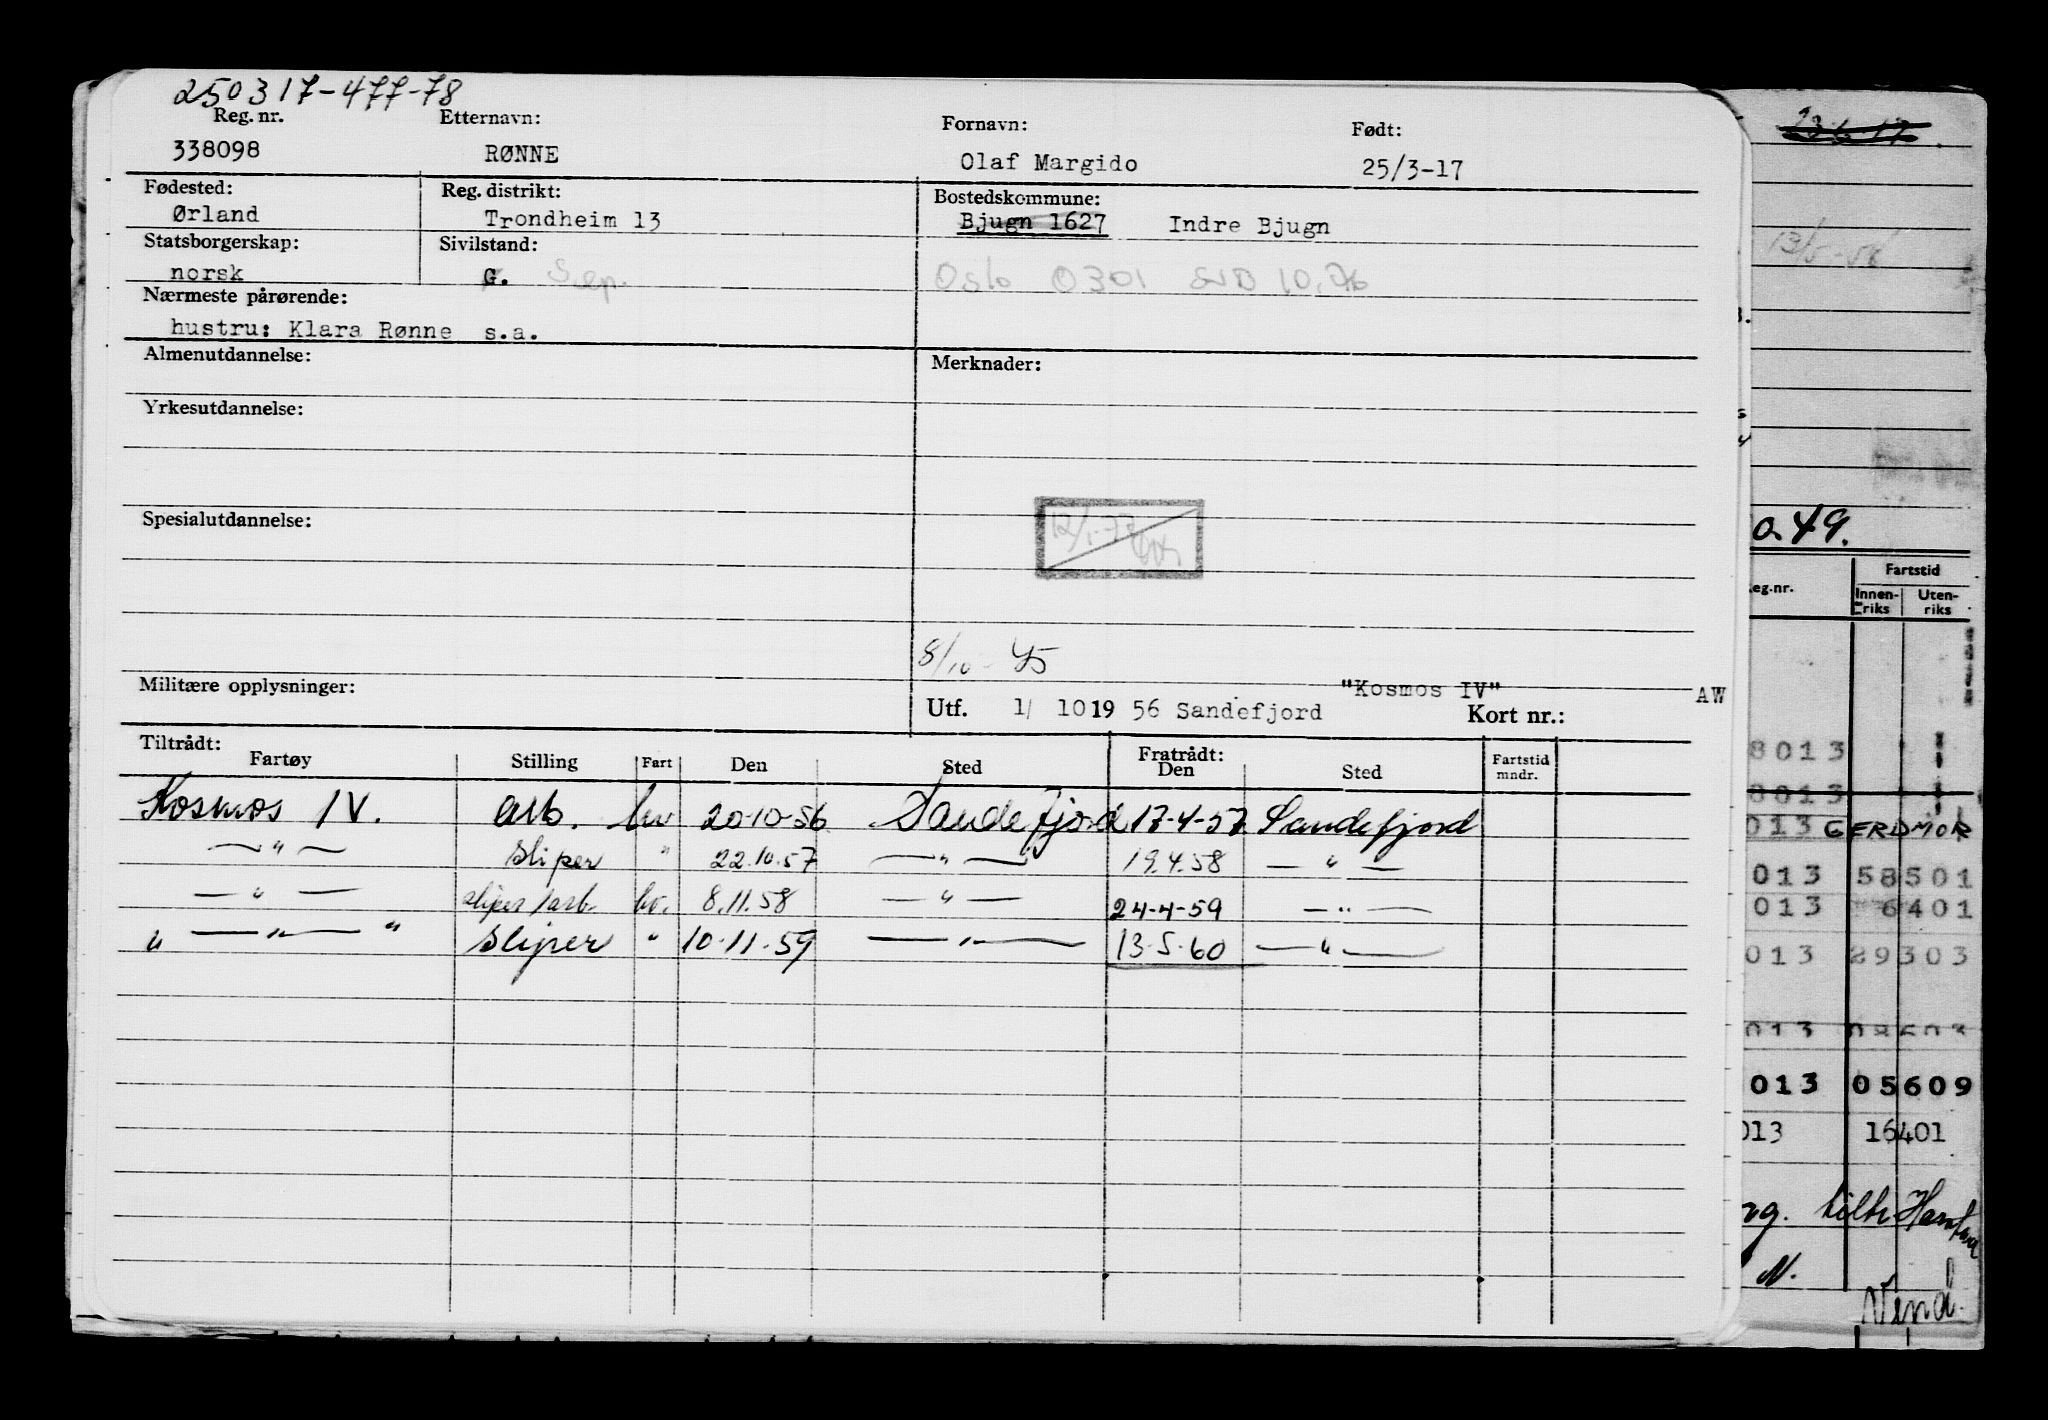 250317-477-78
Reg. nr. Etternavn: Fornavn: Født:
338098 RØNNE Olaf Margido 25/3-17
Fødested: Reg. distrikt: Bostedskommune:
Ørland Trondheim 13 Bjugn 1627 Indre Bjugn
Statsborgerskap: Sivilstand:
norsk G. Sep. Oslo 0301 10.76
Nærmeste pårørende:
hustru: Klara Rønne s.a.
Almenutdannelse: Merknader:
Yrkesutdannelse:
12/1-77
Spesialutdannelse:
8/10-45
Militære opplysninger: "Kosmos IV" AW
Utf. 1/ 1019 56 Sandefjord Kort nr.:
Tiltrådt: Fratrådt:
Fartøy Stilling Fart Den Sted Den Sted Fartstid mndr.
Kosmos IV. arb. hv 20-10-56 Sandefjord 17-4-57 Sandefjord
— " — Sliper " 22.10.57 — " — 19.4.58 — " —
— " — sliper/arb. hv. 8.11.58 — " — 24-4-59 — " —
" — " — " Sliper " 10-11-59 — " — 13-5-60 — " —
23.6.17.
13/5-58
49.
eg.nr. Fartstid
Innen-riks Uten-riks
8013
8013
013 GERDMOR
013 58501
013 6401
013 29303
013 08603
013 05609
013 16401
N.
Vend.